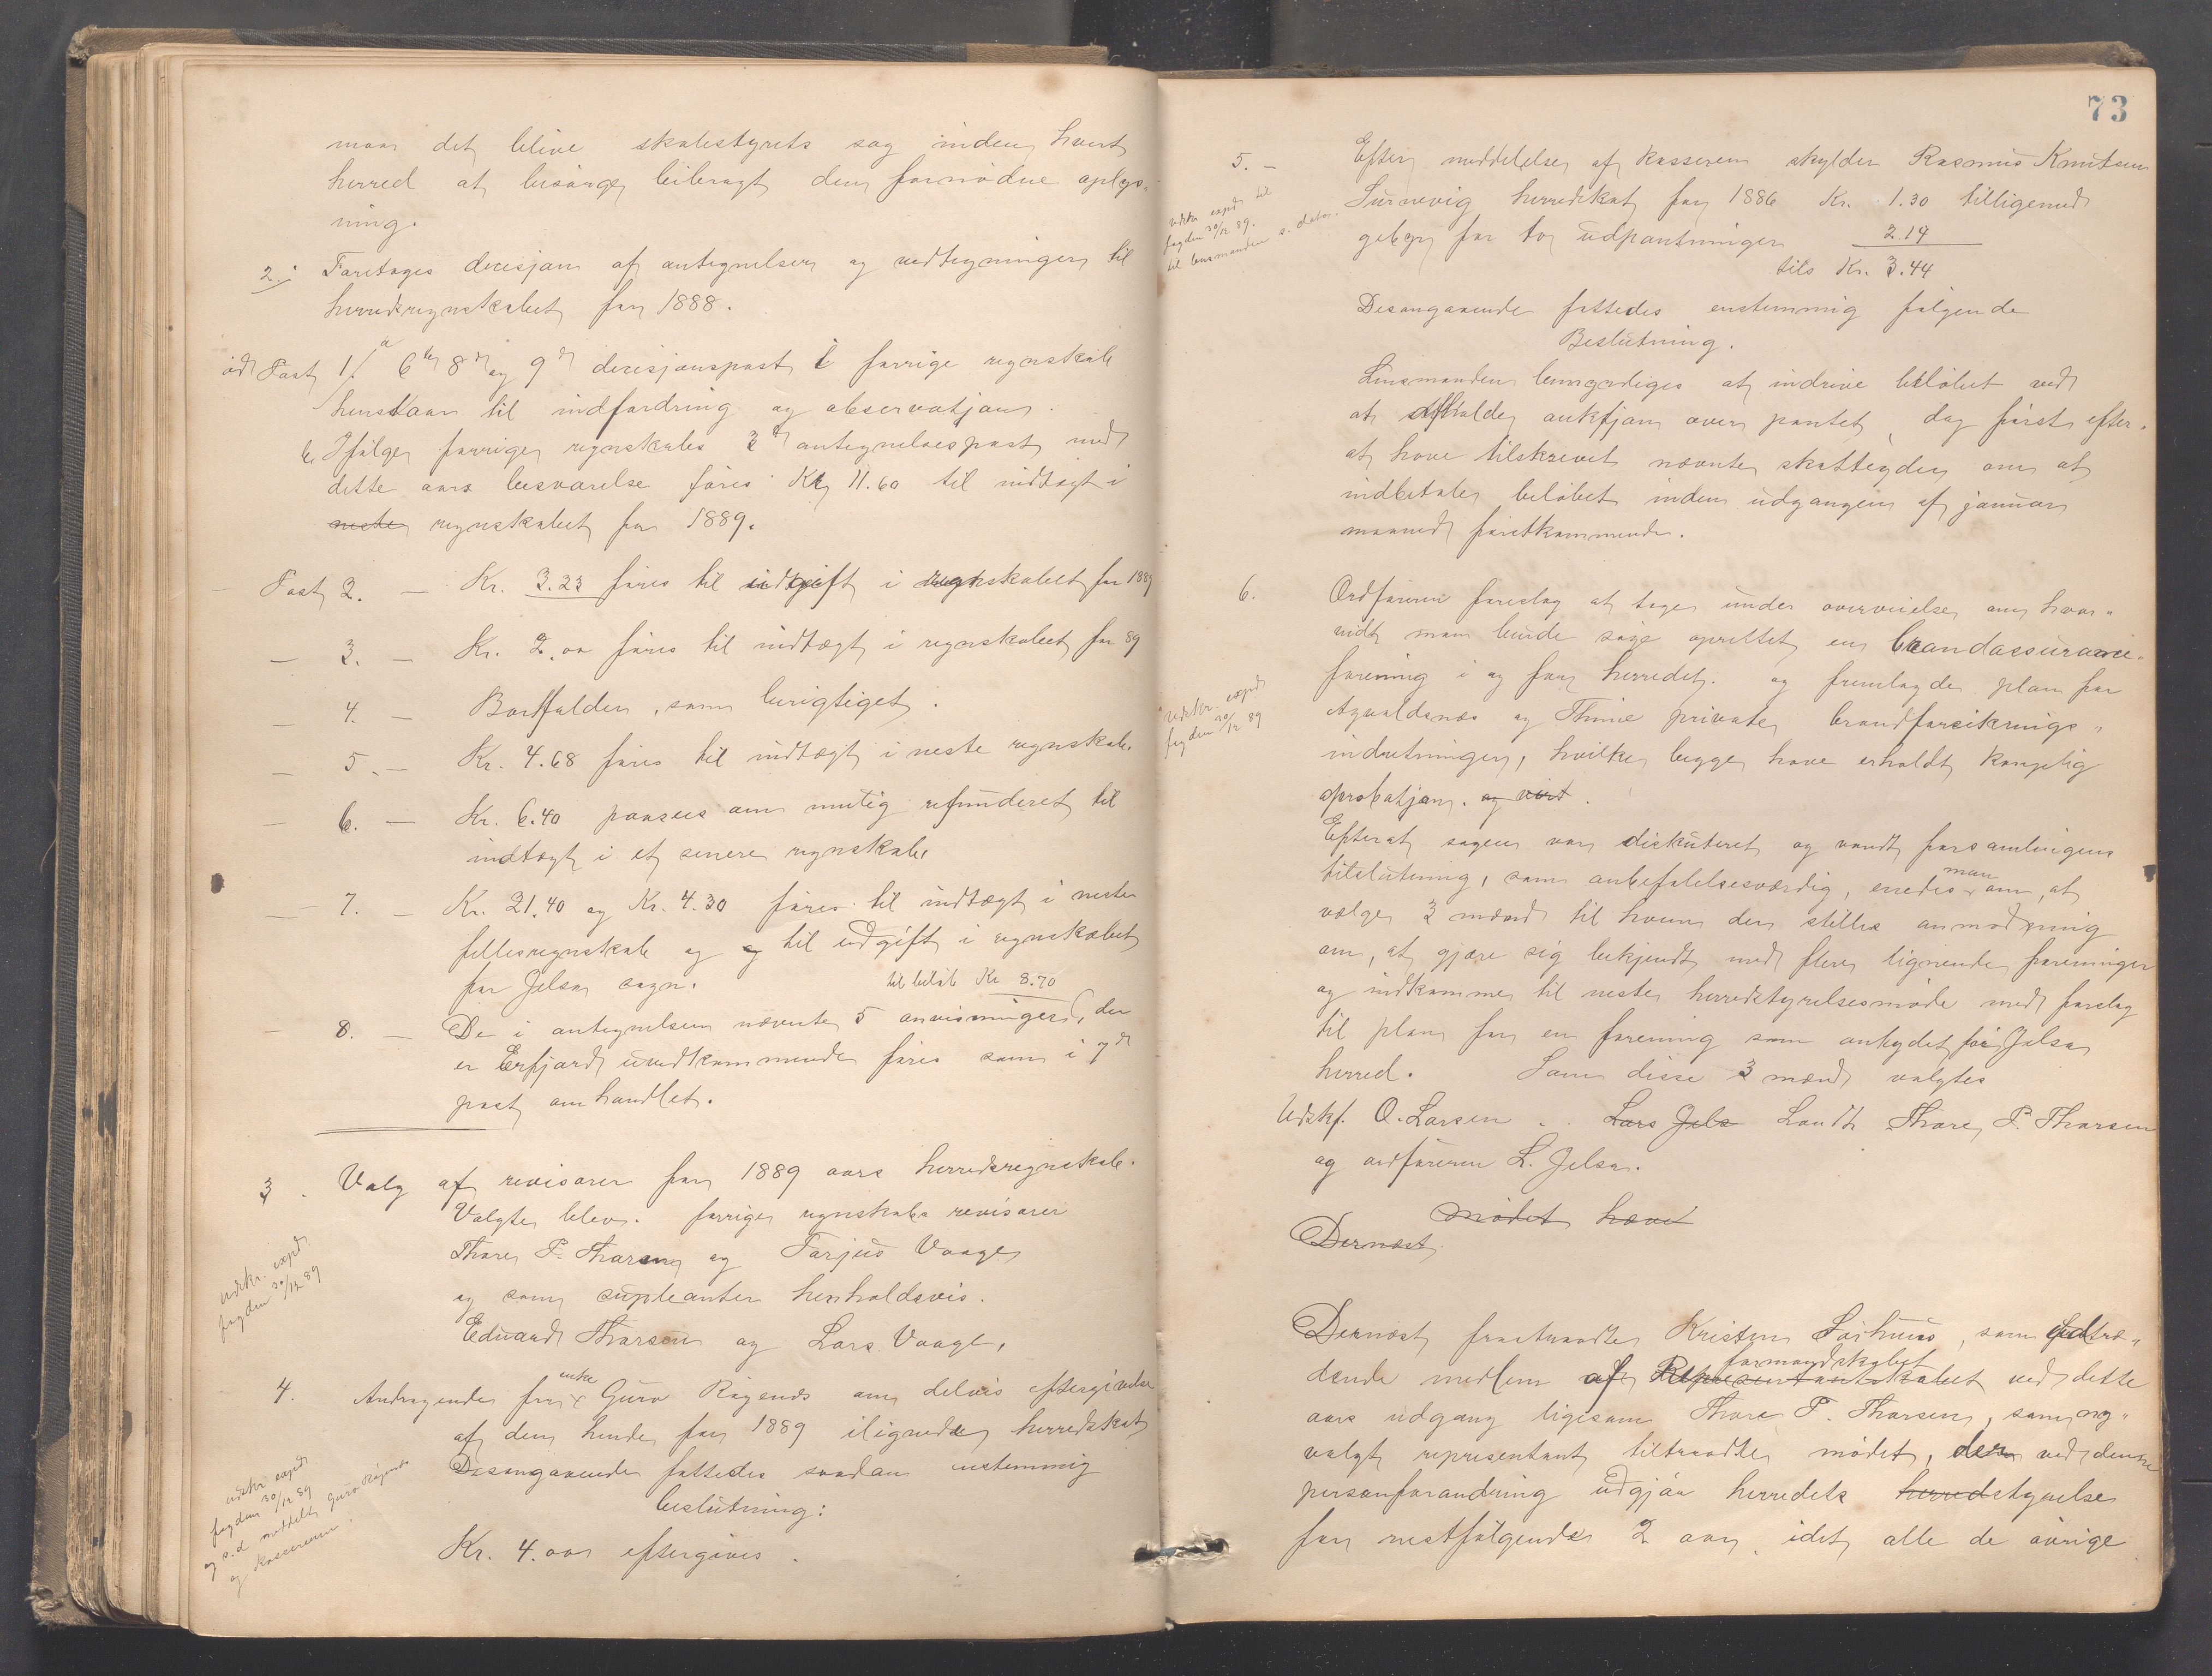 maa det blive skolestyrets sag inden hvert
herred at besørge bibragt den fornødne oplys-
ning.
2. Foretoges decisjon af antegnelser og vedtegninger til
herredsregnskabet for 1888.
ad Post 1. a 6te 8de og 9de decisjonspost i forrige regnskab
henstaar til indfordring og observatjon.
b. Ifølge forrige regnskabs 3de antegnelsespost med
dette aars besvarelse føres Kr 11.60 til indtægt i
neste regnskabet for 1889.
Post 2. — Kr. 3.23 føres til udgift i regnskabet for 1889
— 3. — Kr. 2.00 føres til indtægt i regnskabet for 89
— 4. — Bortfalder, som berigtiget.
— 5. — Kr. 4.68 føres til indtægt i neste regnskab.
— 6. — Kr. 6.40 passes om mulig refunderet til
indtægt i et senere regnskab.
— 7. — Kr. 21.40 og Kr. 4.30 føres til indtægt i neste
fellesregnskab og og til udgift i regnskabet
for Jelsa sogn.
til beløb Kr 8.70
— 8. — De i antegnelsen nævnte 5 anvisninger, der
er Erfjord uvedkommende føres som i 7de
post omhandlet.
3. Valg af revisorer for 1889 aars herredsregnskab.
Valgte blev. forrige regnskabs revisorer
Thore P. Thorsen og Torjus Vaage
og som supleanter henholdsvis.
Edvard Thorsen og Lars Vaage.
udskr. exped
fogden 30/12 89
4. Andragende fra enke Guro Røgends om delvis eftergivelse
af den hende for 1889 ilignede herredskat
Desangaaende fattedes saadan enstemmig
beslutning:
Kr. 4.00 eftergives.
udskr. exped
fogden 30/12 89
og s.d. meddelt Guro Røgends
og kassereren.
73
5. — Efter meddelelse af kassereren skylder Rasmus Knutsen
herredskat for 1886 Kr. 1.30 tilligemed
gebyr for to udpantninger 2.14
tils Kr. 3.44
udskr. exped til
fogden 30/12 89.
til lensmanden s. dato.
Desangaaende fattedes enstemmig følgende
Beslutning.
Lensmanden bemyndiges at indrive beløbet ved
at afholde auktjon over pantet, dog først efter
at have tilskrevet nævnte skatteyder om at
indbetale beløbet inden udgangen af januar
maaned førstkommende.
6. Ordføreren foreslog at tage under overveielse om hvor-
vidt man burde søge oprettet en brandassurance-
forening i og for herredet. og fremlagde plan for
Agvaldsnes og Thime private brandforsikrings-
indretninger, hvilke begge have erholdt kongelig
aprobatjon. og vort.
udskr. exped
fogden 30/12 89
Efterat sagen var diskuteret og vandt forsamlingens
tilslutning, som anbefalelsesværdig, enedes man om, at
vælge 3 mænd til hvem der stilles anmodning
om, at gjøre sig bekjendt med flere lignende foreninger
og indkomme til neste herredstyrelsesmøde med forslag
til plan for en forening som antydet for Jelsa
herred. Som disse 3 mænd valgtes
Udskf. O. Larsen . Lars Jels Landh. Thore P. Thorsen
og ordføreren L. Jelsa.
Mødet hævet
Dernæst
Dernæst fratraadte Kristen Sørhuus, som udtræ-
dende medlem af Representantskabet formandskabet ved dette
aars udgang ligesom Thore P. Thorsen, som ny-
valgt representant tiltraadte mødet, der ved denne
personforandring udgjør herredets herredstyrelse
for nestfølgende 2 aar, idet alle de øvrige